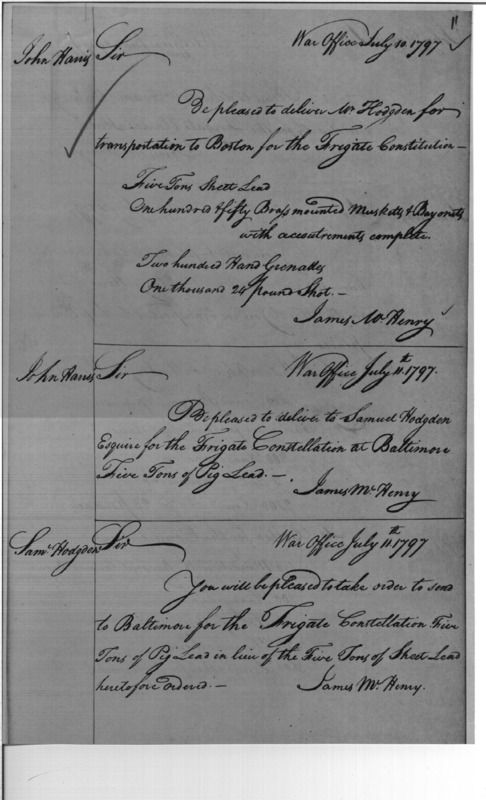 11
War Office July 10. 1797
John Harris Sir
Be pleased to deliver Mr Hodgden for
transportation to Boston for the Frigate Constitution —
Five Tons Sheet Lead
One hundred & fifty Brass mounted Musketts & Bayonets
with accoutrements complete.
Two hundred Hand Grenades
One thousand 24 pound Shot. —
James McHenry
John Harris Sir War Office July 11th 1797.
Be pleased to deliver to Samuel Hodgden
Esquire for the Frigate Constellation at Baltimore
Five Tons of Pig Lead. —
James McHenry
Saml Hodgden Sir War Office July 11th 1797
You will be pleased to take order to send
to Baltimore for the Frigate Constellation Five
Tons of Pig Lead in lieu of the Five Tons of Sheet Lead
heretofore ordered. — James McHenry.